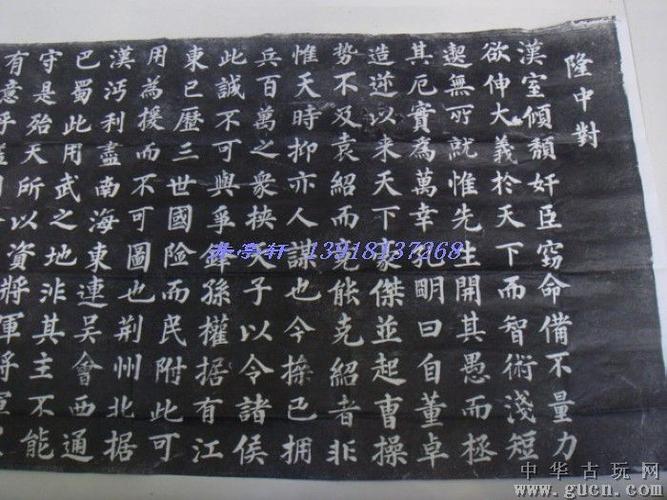 隆中對
漢室傾頹奸臣竊命備不量力
欲伸大義於天下而智術淺短
無所就惟先生開其愚而極
其厄實為萬幸孔明曰自董卓
造逆以来天下豪傑並起曹操
势不及袁紹而竟能克紹者非
惟天時抑亦人謀也今操已拥
兵百萬之衆挾天子以令諸侯
此誠不可與爭鋒孫權据有江
東已歷三世國險而民附此可
用為援而不可圖也荆州北据
漢沔利盡南海東連吴會西通
巴蜀此用武之地非其主不能
守是殆天所以資將軍將軍
有意乎
亭軒 13918137268
中华古玩网
www.gucn.com